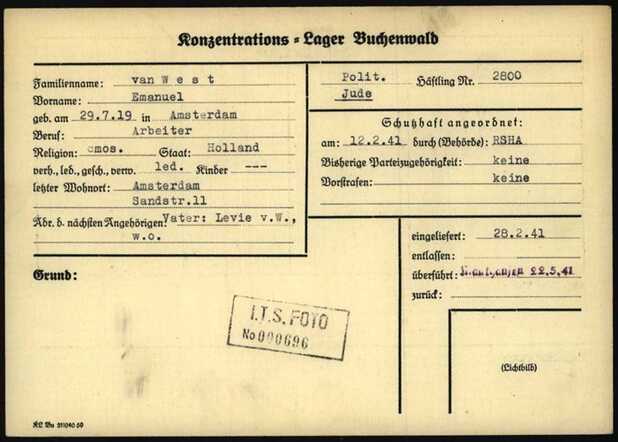 Konzentrations=Lager Buchenwald
Familienname: van West
Vorname: Emanuel
geb. am 29.7.19 in Amsterdam
Beruf: Arbeiter
Religion: mos. Staat: Holland
verh., led., gesch., verw. led. Kinder ---
letzter Wohnort: Amsterdam
Sandstr.11
Adr. d. nächsten Angehörigen: Vater: Levie v.W.,
w.o.
Grund:
Polit. Häftling Nr. 2800
Jude
Schutzhaft angeordnet:
am: 12.2.41 durch (Behörde): RSHA
Bisherige Parteizugehörigkeit: keine
Vorstrafen: keine
eingeliefert: 28.2.41
entlassen:
überführt: Mauthausen 22.5.41
zurück:
I.T.S. FOTO
No 000696
(Lichtbild)
KL Bu